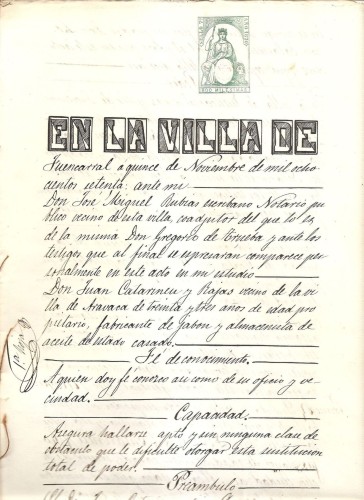 EN LA VILLA DE
Fuencarral a quince de Noviembre de mil ocho
cientos setenta: ante mi
Don José Miguel Rubias escribano Notario pu
blico vecino de esta villa, coadjutor del que lo es
de la misma Don Gregorio de Trueba y ante los
testigos que al final se espresaran comparece per
sonalmente en este acto en mi estudio
Don Juan Catarineu y Rajas vecino de la vi
lla de Aravaca de treinta y tres años de edad pro
pietario, fabricante de Jabon y almacenista de
aceite de estado casado.
Fé de conocimiento.
A quien doy fé conozco asi como de su oficio y ve
cindad.
Capacidad.
Asegura hallarse apto y sin ninguna clase de
obstaculo que le dificulte otorgar esta sustitucion
total de poder.
Préambulo